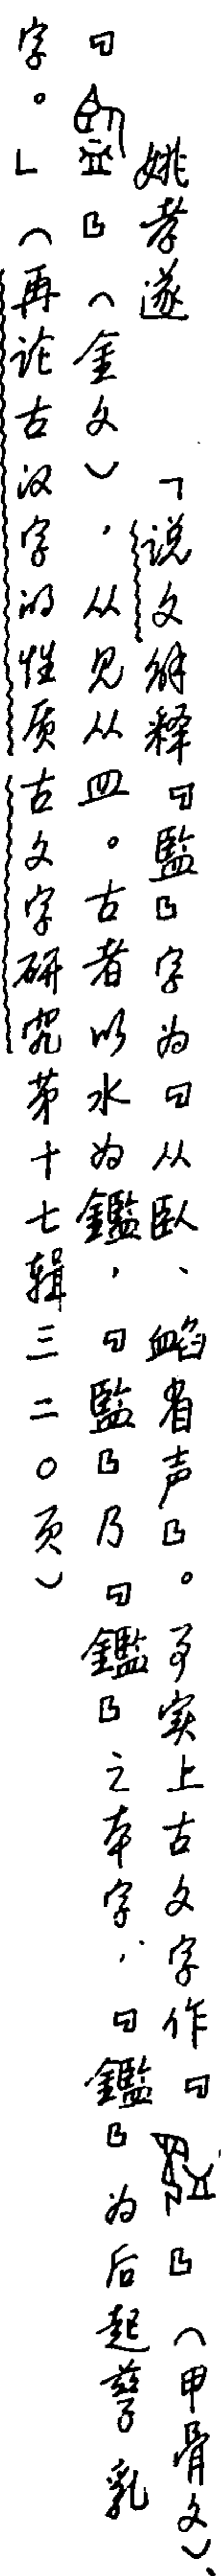 姚孝遂 「说文解释『監』字为『从臥、䘓省声』。事实上古文字作『』（甲骨文）、
『』（金文），从见从皿。古者以水为鑑，『監』乃『鑑』之本字，『鑑』为后起孳乳
字。」（再论古汉字的性质古文字研究第十七辑三二〇页）